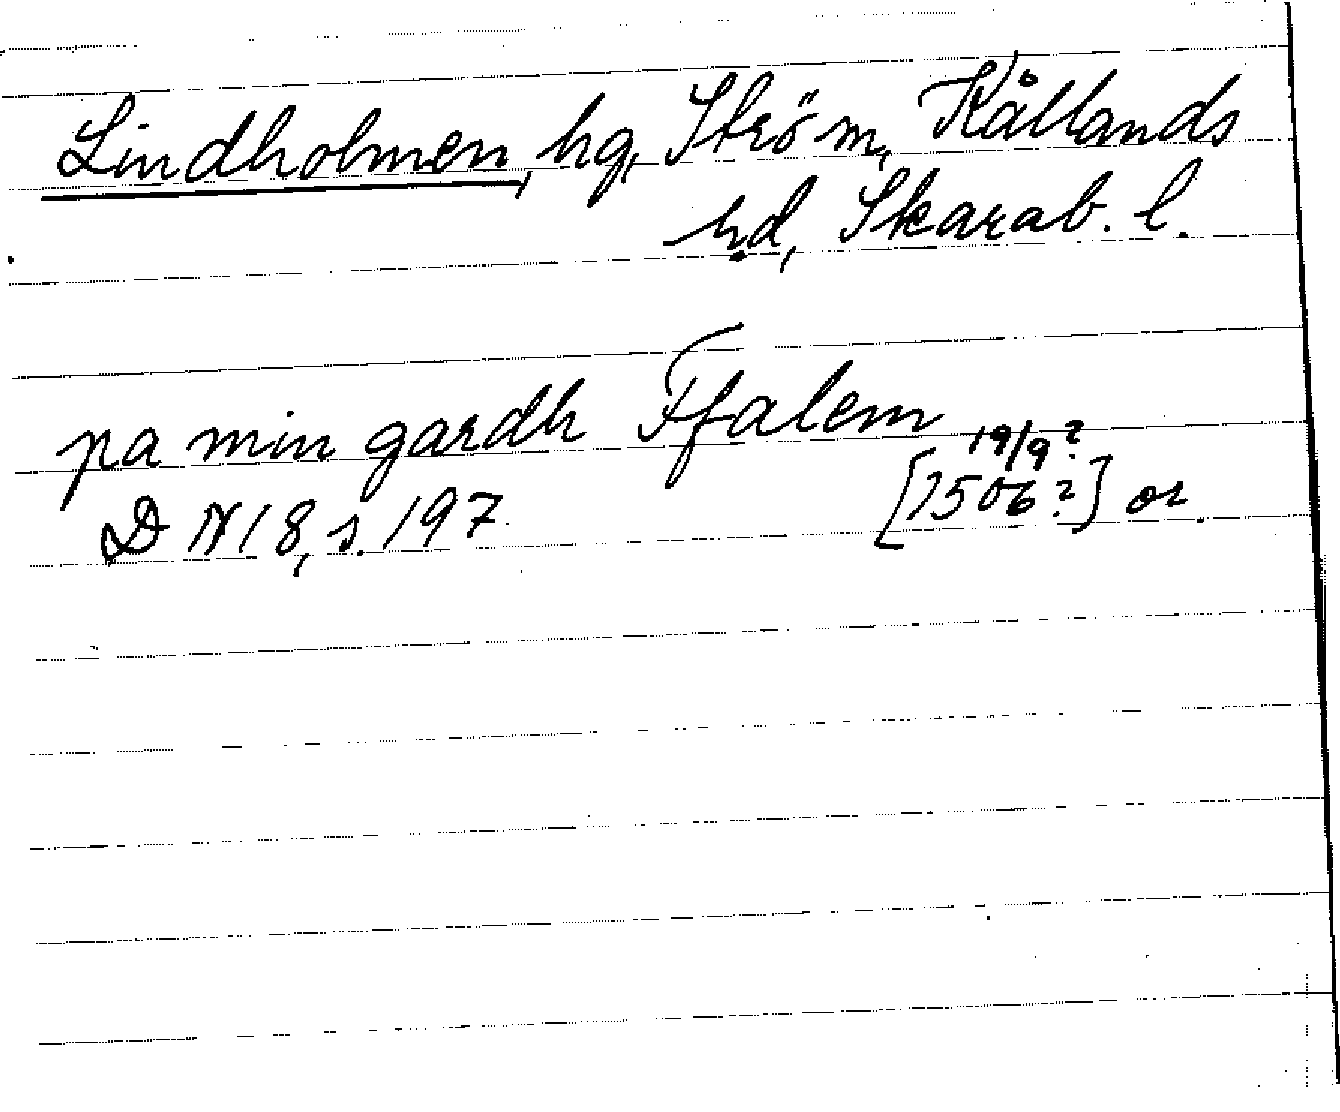 Lindholmen, hg, Ström, Kållands
hd, Skarab. l.
pa min gardh Ffalem
19/9?
DN 18, s. 197 [1506?] or